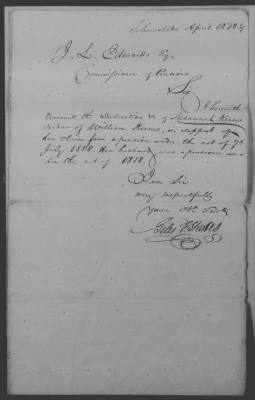 Schenectady April 1839
J. L. Edwards Esq.
Commissioner of Pensions
Sir
I herewith
transmit the Declaration &c of Susannah Kerns
widow of William Kerns, in support of
her claim for a pension under the act of 7th
July 1838. Her husband was a pensioner un=
der the act of 1818.
I am Sir
very respectfully
Your Obt. Servt
Giles F. Yates